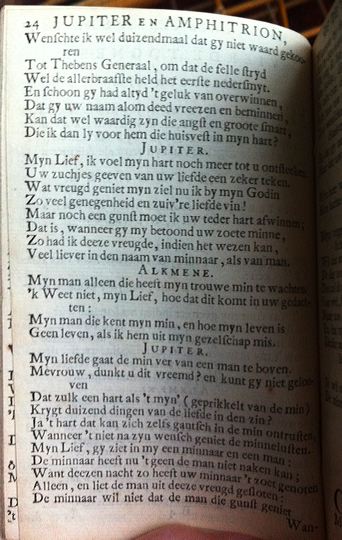 24 JUPITER EN AMPHITRION,
Wenſchte ik wel duizendmaal dat gy niet waard gekoo-
ren
Tot Thebens Generaal, om dat de felle ſtryd
Wel de allerbraafſte held het eerſte nederſmyt.
En ſchoon gy had altyd 't geluk van overwinnen,
Dat gy uw naam alom deed vreezen en beminnen,
Kan dat wel waardig zyn die angſt en groote ſmart,
Die ik dan ly voor hem die huisveſt in myn hart?
JUPITER.
Myn Lief, ik voel myn hart noch meer tot u ontſteeken.
Uw zuchjes geeven van uw liefde een zeker teken.
Wat vreugd geniet myn ziel nu ik by myn Godin
Zo veel genegenheid en zuiv're liefde vin!
Maar noch een gunſt moet ik uw teder hart afwinnen;
Dat is, wanneer gy my betoond uw zoete minne,
Zo had ik deeze vreugde, indien het wezen kan,
Veel liever in den naam van minnaar, als van man.
ALKMENE.
Myn man alleen die heeft myn trouwe min te wachten.
'k Weet niet, myn Lief, hoe dat dit komt in uw gedach-
ten:
Myn man die kent myn min, en hoe myn leven is
Geen leven, als ik hem uit myn gezelſchap mis.
JUPITER.
Myn liefde gaat de min ver van een man te boven.
Mevrouw, dunkt u dit vreemd? en kunt gy niet geloo-
ven
Dat zulk een hart als 't myn' (geprikkelt van de min)
Krygt duizend dingen van de liefde in den zin?
Ja 't hart dat kan zich zelfs gantſch in de min ontruſten,
Wanneer 't niet na zyn wenſch geniet de minneluſten.
Myn Lief, gy ziet in my een minnaar en een man:
De minnaar heeft nu 't geen de man niet naken kan;
Want deezen nacht zo heeft uw minnaar 't zoet genoten
Alleen, en liet de man uit deeze vreugd geſloten:
De minnaar wil niet dat de man die gunſt geniet
Wan-